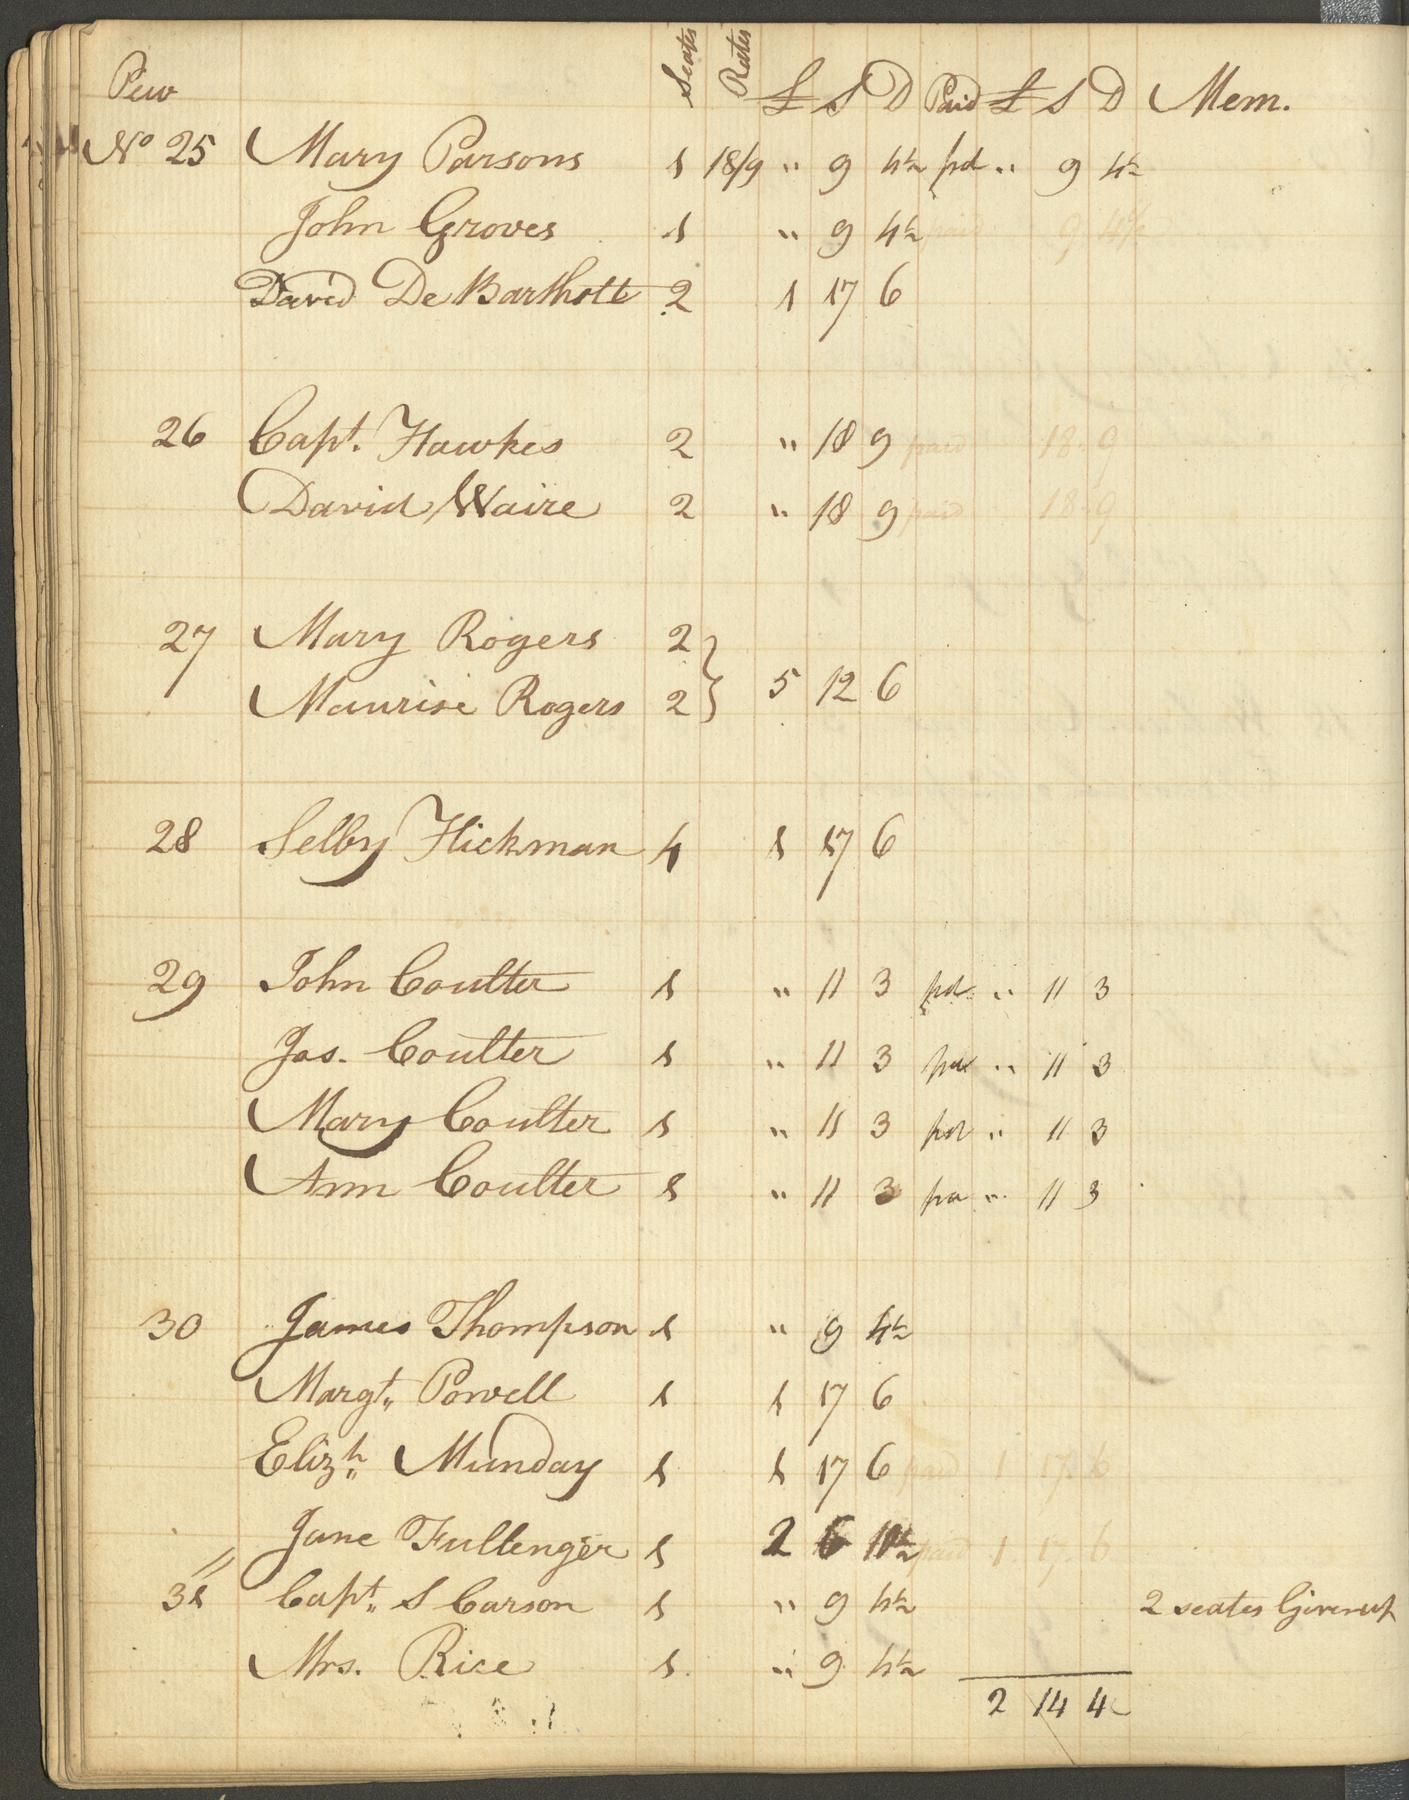 Pew Seates Rates £ S D Paid £ S D Mem.
No 25 Mary Parsons 1 18/9 " 9 4½ pd " 9 4½
John Groves 1 " 9 4½ paid 9 4½
David De Bartholt 2 1 17 6
26 Capt. Hawkes 2 " 18 9 paid 18 9
David Waire 2 " 18 9 paid 18 9
27 Mary Rogers 2
Maurise Rogers 2 } 5 12 6
28 Selby Hickman 4 1 17 6
29 John Coulter 1 " 11 3 pd " 11 3
Jas. Coulter 1 " 11 3 pd " 11 3
Mary Coulter 1 " 11 3 pd " 11 3
Ann Coulter 1 " 11 3 pd " 11 3
30 James Thompson 1 " 9 4½
Margt. Powell 1 1 17 6
Elizh. Munday 1 1 17 6 paid 1 17 6
Jane Fullenger 1 2 6 10½ paid 1 17 6
31 Capt. S Carson 1 " 9 4½ 2 seates Given up
Mrs. Rice 1 " 9 4½
2 14 4½